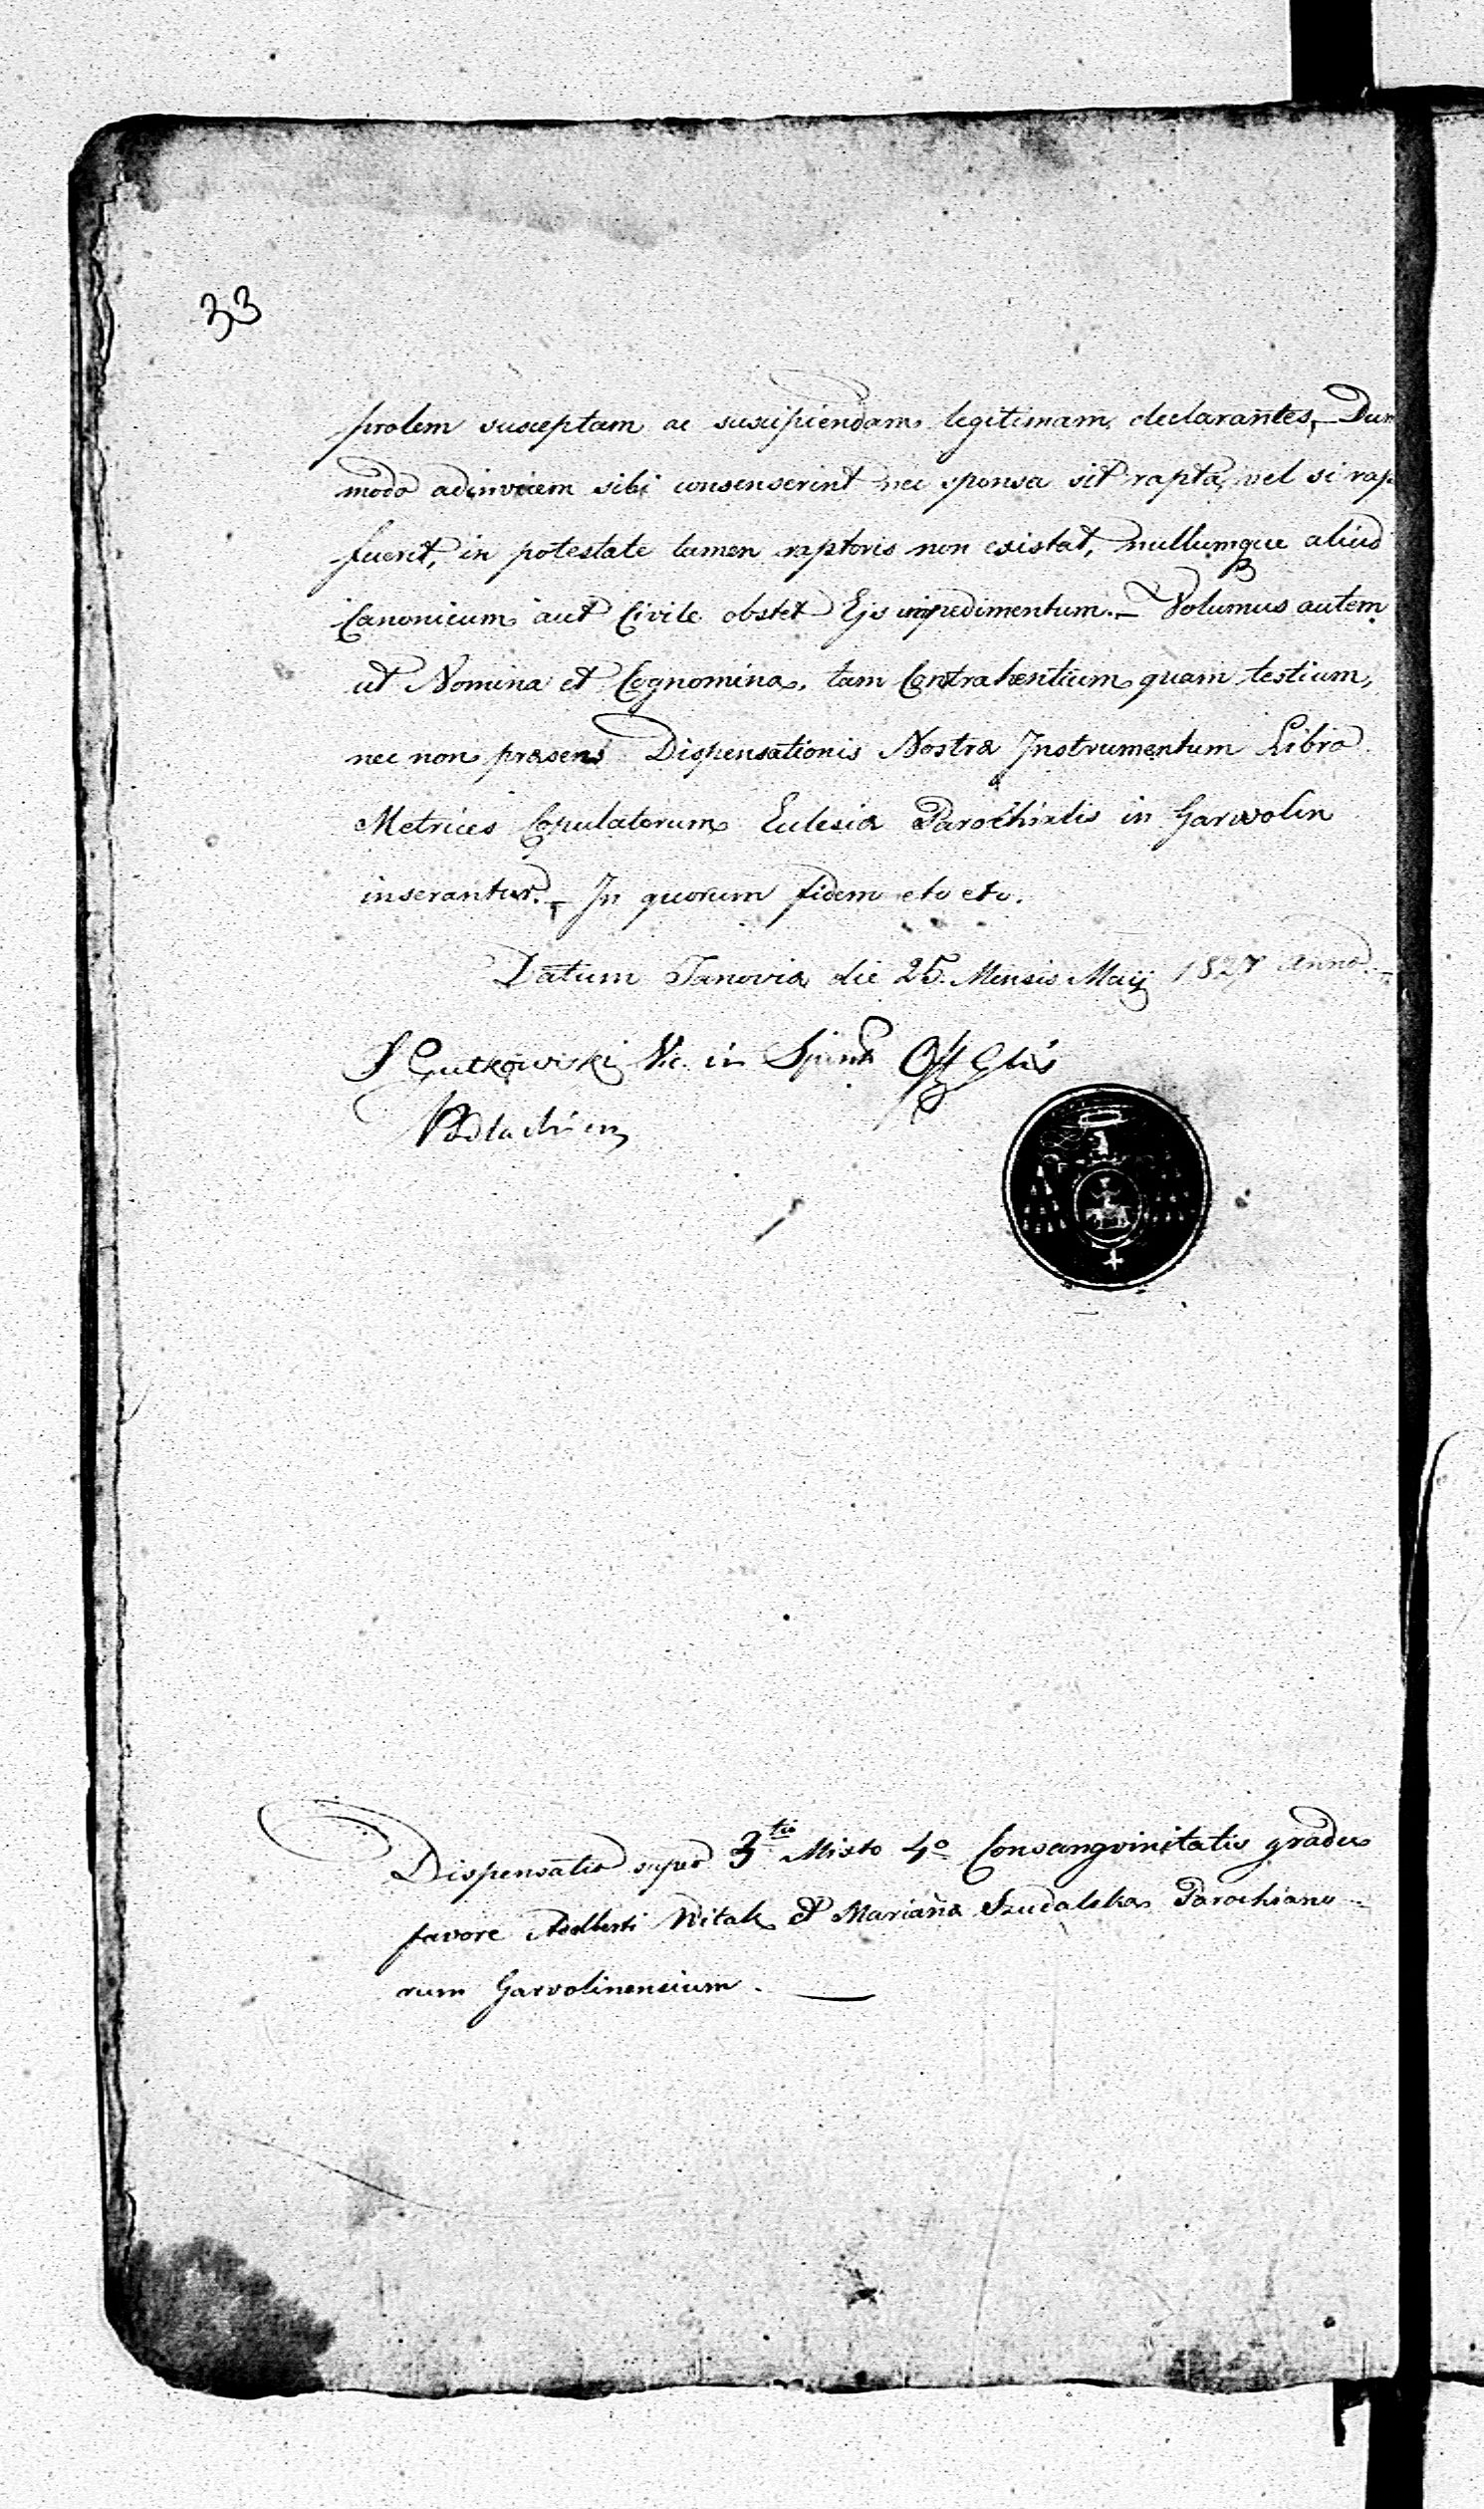 33
prolem susceptam ac suscipiendam legitimam declarantes, Dum
modo adinvicem sibi consenserint nec sponsa sit rapta, vel si rap
fuerit, in potestate tamen raptoris non existat, nullumque aliud
Canonicum aut Civile obstet Ejs impedimentum. – Volumus autem
ut Nomina et Cognomina, tam Contrahentium quam testium,
nec non præsens Dispensationis Nostræ Instrumentum Libro
Metrices Copulatorum Eclesiæ Parochialis in Garwolin
inserantur. – In quorum fidem etc etc.
Datum Janoviæ die 25. Mensis Maij 1827 Anno. –
J Gutkowski Vic. in Spirit Off Glis
Podlachien
Dispensatio super 3tio Mixto 4o Consangvinitatis gradu
favore Adalberti Witak et Marianæ Szudalska Parochiano
rum Garvolinensium. —